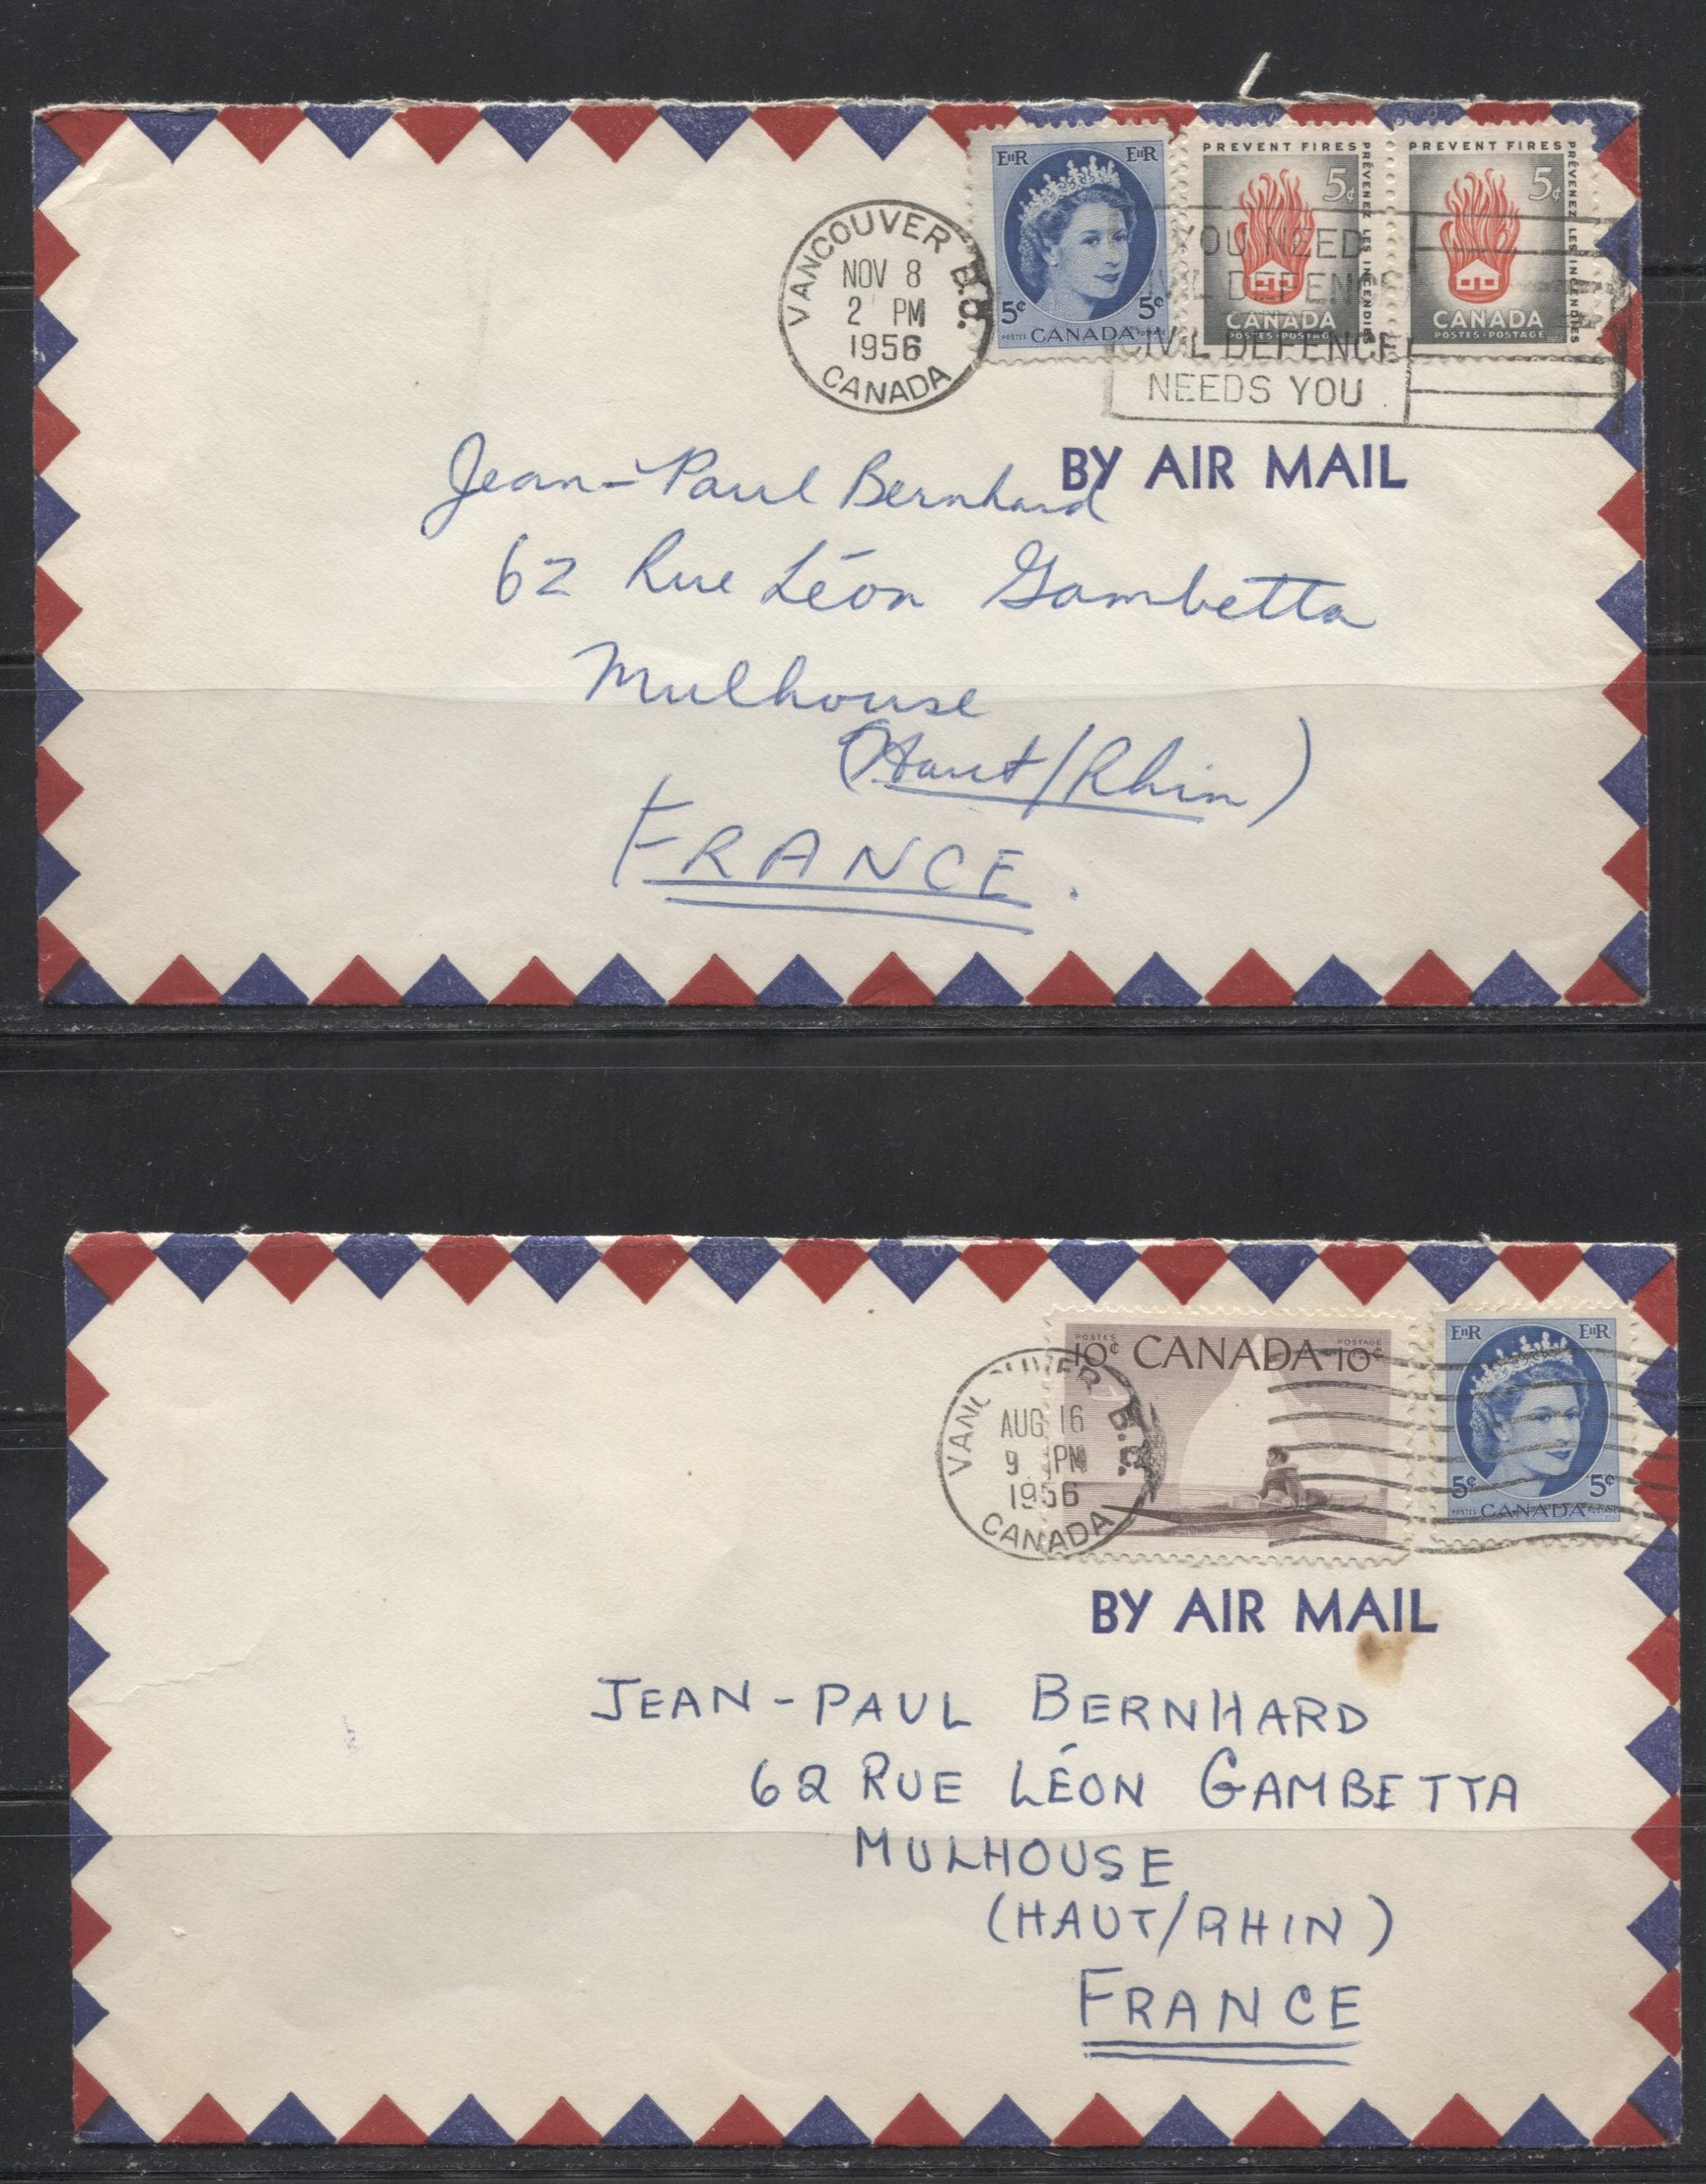 EIIR EIIR
5¢ 5¢
POSTES CANADA POSTAGE
PREVENT FIRES
PRÉVENEZ LES INCENDIES
5¢
CANADA
POSTES · POSTAGE
PREVENT FIRES
PRÉVENEZ LES INCENDIES
5¢
CANADA
POSTES · POSTAGE
VANCOUVER B.C.
NOV 8
2 PM
1956
CANADA
YOU NEED
CIVIL DEFENCE
CIVIL DEFENCE
NEEDS YOU
BY AIR MAIL
Jean-Paul Bernhard
62 Rue Léon Gambetta
Mulhouse
(Haut/Rhin)
FRANCE.
POSTES POSTAGE
10¢ CANADA 10¢
EIIR EIIR
5¢ 5¢
POSTES CANADA POSTAGE
VANCOUVER B.C.
AUG 16
9 PM
1956
CANADA
BY AIR MAIL
JEAN-PAUL BERNHARD
62 RUE LÉON GAMBETTA
MULHOUSE
(HAUT/RHIN)
FRANCE